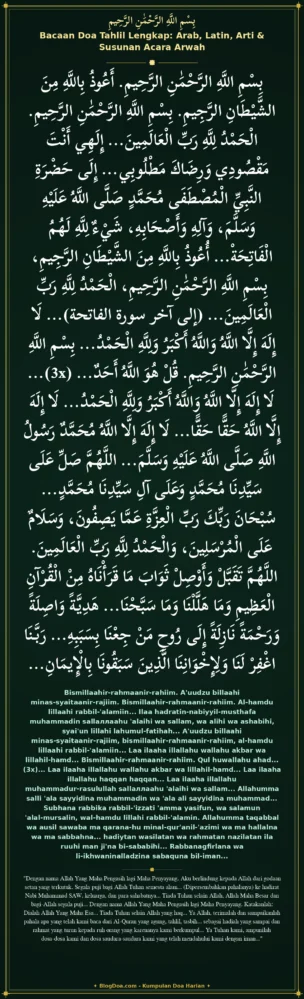 بِسْمِ اللهِ الرَّحْمٰنِ الرَّحِيْمِ
Bacaan Doa Tahlil Lengkap: Arab, Latin, Arti &
Susunan Acara Arwah
بِسْمِ اللهِ الرَّحْمٰنِ الرَّحِيمِ. أَعُوذُ بِاللهِ مِنَ
الشَّيْطَانِ الرَّجِيمِ. بِسْمِ اللهِ الرَّحْمٰنِ الرَّحِيمِ.
الْحَمْدُ لِلَّهِ رَبِّ الْعَالَمِينَ... إِلَهِي أَنْتَ
مَقْصُودِي وَرِضَاكَ مَطْلُوبِي... إِلَى حَضْرَةِ
النَّبِيِّ الْمُصْطَفَى مُحَمَّدٍ صَلَّى اللهُ عَلَيْهِ
وَسَلَّمَ، وَآلِهِ وَأَصْحَابِهِ، شَيْءٌ لِلَّهِ لَهُمُ
الْفَاتِحَةُ... أَعُوذُ بِاللهِ مِنَ الشَّيْطَانِ الرَّجِيمِ،
بِسْمِ اللهِ الرَّحْمٰنِ الرَّحِيمِ، الْحَمْدُ لِلَّهِ رَبِّ
الْعَالَمِينَ... (إلى آخر سورة الفاتحة)... لَا
إِلَهَ إِلَّا اللهُ وَاللهُ أَكْبَرُ وَلِلَّهِ الْحَمْدُ... بِسْمِ اللهِ
الرَّحْمٰنِ الرَّحِيمِ. قُلْ هُوَ اللهُ أَحَدٌ... (3x)...
لَا إِلَهَ إِلَّا اللهُ وَاللهُ أَكْبَرُ وَلِلَّهِ الْحَمْدُ... لَا إِلَهَ
إِلَّا اللهُ حَقًّا حَقًّا... لَا إِلَهَ إِلَّا اللهُ مُحَمَّدٌ رَسُولُ
اللهِ صَلَّى اللهُ عَلَيْهِ وَسَلَّمَ... اللَّهُمَّ صَلِّ عَلَى
سَيِّدِنَا مُحَمَّدٍ وَعَلَى آلِ سَيِّدِنَا مُحَمَّدٍ...
سُبْحَانَ رَبِّكَ رَبِّ الْعِزَّةِ عَمَّا يَصِفُونَ، وَسَلَامٌ
عَلَى الْمُرْسَلِينَ، وَالْحَمْدُ لِلَّهِ رَبِّ الْعَالَمِينَ.
اللَّهُمَّ تَقَبَّلْ وَأَوْصِلْ ثَوَابَ مَا قَرَأْنَاهُ مِنَ الْقُرْآنِ
الْعَظِيمِ وَمَا هَلَّلْنَا وَمَا سَبَّحْنَا... هَدِيَّةً وَاصِلَةً
وَرَحْمَةً نَازِلَةً إِلَى رُوحِ مَنْ جِعْنَا بِسَبَبِهِ... رَبَّنَا
اغْفِرْ لَنَا وَلِإِخْوَانِنَا الَّذِينَ سَبَقُونَا بِالْإِيمَانِ...
Bismillaahir-rahmaanir-rahiim. A'uudzu billaahi
minas-syaitaanir-rajiim. Bismillaahir-rahmaanir-rahiim. Al-hamdu
lillaahi rabbil-'alamiin... Ilaa hadratin-nabiyyil-musthafa
muhammadin sallaaahu 'alaihi wa sallam, wa alihi wa ashabihi,
syai'un lillahi lahumul-fatihah... A'uudzu billaahi
minas-syaitaanir-rahmaanir, bismillaahir-rahmaanir-rahiim, al-hamdu
lillaahi rabbil-'alamiin... Laa ilaaha illallahu wallahu akbar wa
lillahil-hamd... Bismillaahir-rahmaanir-rahiim. Qul huwallahu ahad...
(3x)... Laa ilaaha illallahu wallahu akbar wa lillahil-hamd... Laa ilaaha
illallahu haqqan haqqan... Laa ilaaha illallahu
muhammadur-rasulullah sallallaahu 'alaihi wa sallam... Allahumma
salli 'ala sayyidina muhammadin wa 'ala ali sayyidina muhammad...
Subhana rabbika rabbil-'izzati 'amma yasifun, wa salamun
'alal-mursalin, wal-hamdu lillahi rabbil-'alamin. Allahumma taqabbal
wa ausil sawaba ma qarana-hu minal-qur'anil-'azimi wa ma hallalna
wa ma sabbahna... hadiytan wasilatan wa rahmatan nazilatan ila
ruuhi man ji'na bi-sababihi... Rabbanagfirlana wa
li-ikhwaninalladzina sabaquna bil-iman...
"Dengan nama Allah Yang Maha Pengasih lagi Maha Penyayang, Aku berlindung kepada Allah dari godaan
setan yang terkutuk. Segala puji bagi Allah Tuhan semesta alam... (Dipersembahkan pahalanya) ke hadirat
Nabi Muhammad SAW, keluarga, dan para sahabatnya... Tiada Tuhan selain Allah, Allah Maha Besar dan
bagi-Allah segala puji... Dengan nama Allah Yang Maha Pengasih lagi Maha Penyayang. Katakanlah:
Dialah Allah Yang Maha Esa... Tiada Tuhan selain Allah yang haq... Ya Allah, terimalah dan sampaikanlah
pahala apa yang telah kami baca dari Al-Quran yang agung, tahlil, tasbih... sebagai hadiah yang sampai dan
rahmat yang turun kepada ruh orang yang karenanya kami berkumpul... Ya Tuhan kami, ampunilah
dosa-dosa kami dan dosa saudara-saudara kami yang telah mendahului kami dengan iman..."
• BlogDoa.com - Kumpulan Doa Harian •